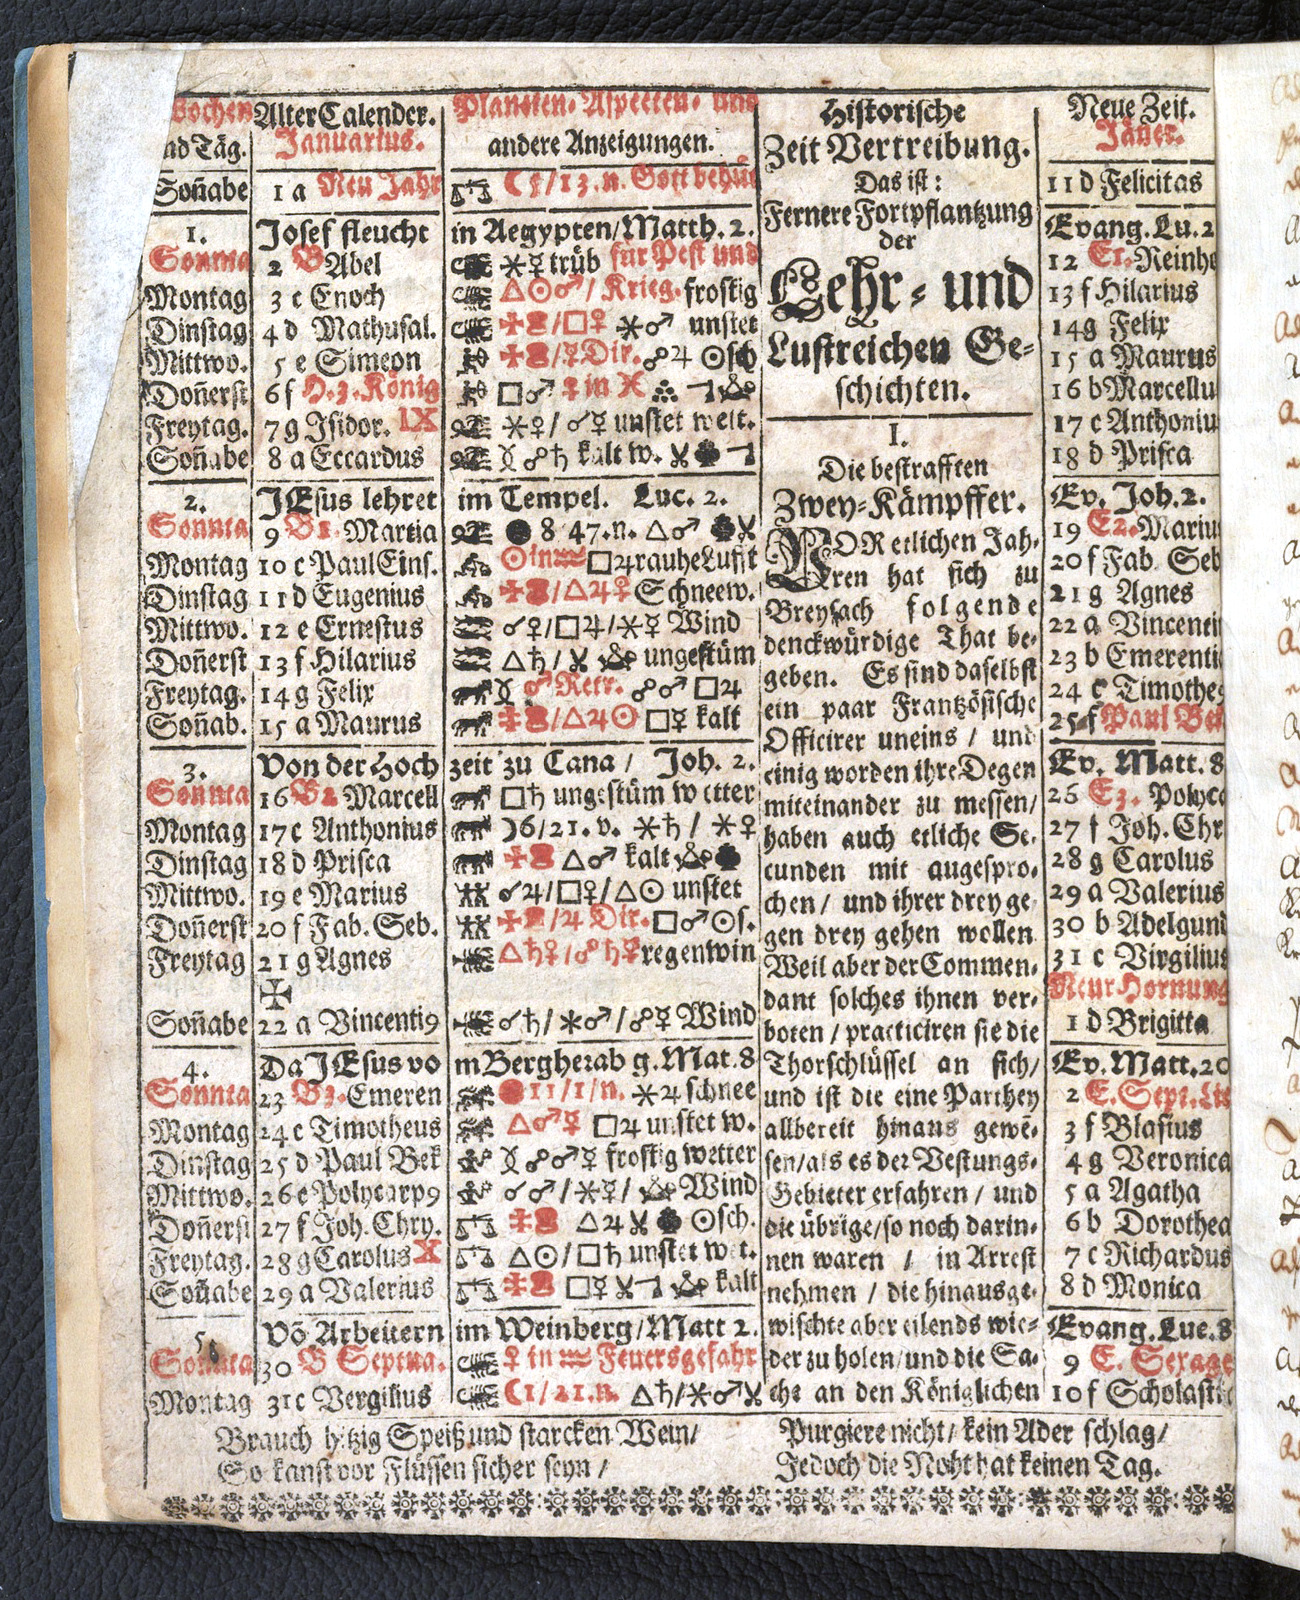 Wochen
und Täg.
Alter Calender.
Januarius.
Planeten, Aspecten, und
andere Anzeigungen.
Historische
Zeit Vertreibung.
Das ist:
Fernere Fortpflantzung
der
Lehr- und
Lustreichen Ge-
schichten.
Neue Zeit.
Jäner.
Soñabe 1 a Neu Jahr ☾ 5/13.n. Gott behüt 11 d Felicitas
1. Josef fleucht in Aegypten/Matth. 2. Evang. Lu. 2
Sonnta 2 B Abel ⚹☿ trüb für Pest und 12 E1. Reinho
Montag 3 c Enoch △☉♂/ Krieg. frostig 13 f Hilarius
Dinstag 4 d Mathusal. □♀ ⚹♂ unstet 14 g Felix
Mittwo. 5 e Simeon ☿Dir. ☍♃ ☉sch 15 a Maurus
Doñerst 6 f H. 3. König □♂ ♀ in ♓ 16 b Marcellu
Freytag. 7 g Isidor. IX ⚹♀/ ☌☿ unstet wett. 17 c Anthoniu
Soñabe 8 a Eccardus ☍♄ kalt w. 18 d Prisca
2. JEsus lehret im Tempel. Luc. 2. Ev. Joh. 2.
Sonnta 9 B1. Martia ● 8 47.n. △♂ 19 E2. Mariu
Montag 10 c Paul Eins. ☉in♒ □♃ rauhe Lufft 20 f Fab Seb
Dinstag 11 d Eugenius △♃♀ Schneew. 21 g Agnes
Mittwo. 12 e Ernestus ☌♀/□♃/⚹☿ Wind 22 a Vincenti
Doñerst 13 f Hilarius △♄/ ungestüm 23 b Emerenti
Freytag. 14 g Felix ♂Retr. ☍♂ □♃ 24 c Timothe
Soñab. 15 a Maurus △♃☉ □☿ kalt 25 f Paul Bek
3. Von der Hoch zeit zu Cana / Joh. 2. Ev. Matt. 8
Sonnta 16 B2 Marcell □♄ ungestüm wetter 26 E3. Polyca
Montag 17 c Anthonius ☽6/21. v. ⚹♄ / ⚹♀ 27 f Joh. Chr
Dinstag 18 d Prisca △♂ kalt 28 g Carolus
Mittwo. 19 e Marius ☌♃/□♀/△☉ unstet 29 a Valerius
Doñerst 20 f Fab. Seb. ♃ Dir. □♂☉s. 30 b Adelgund
Freytag 21 g Agnes △♄♀/☍♄☿ regen win 31 c Virgilius
✠ Neur Hornung
Soñabe 22 a Vincenti9 ☌♄/ ⚹♂/☍☿ Wind 1 d Brigitta
4. Da JEsus vo m Berg herab g. Mat. 8 Ev. Matt. 20
Sonnta 23 B3. Emeren 11/1/n. ⚹♃ schnee 2 E. Sept. Lie
Montag 24 c Timotheus △♂☿ □♃ unstet w. 3 f Blasius
Dinstag 25 d Paul Bek ☍♂☿ frostig wetter 4 g Veronica
Mittwo. 26 e Polycarp9 ☌♂/⚹☿/ Wind 5 a Agatha
Doñerst 27 f Joh. Chry. △♃ ☉sch. 6 b Dorothea
Freytag. 28 g Carolus X △☉/□♄ unstet wet. 7 c Richardus
Soñabe 29 a Valerius □☿ kalt 8 d Monica
5. Võ Arbeitern im Weinberg/Matt 2. Evang. Luc. 8
Sonnta 30 B Septua. ♀ in ♒ Feuersgefahr 9 E. Sexage
Montag 31 c Vergilius ☾1/21.n. △♄/⚹♂ 10 f Scholasti
I.
Die bestrafften
Zwey-Kämpffer.
VOR etlichen Jah-
ren hat sich zu
Breysach folgende
denckwürdige That be-
geben. Es sind daselbst
ein paar Frantzösische
Officirer uneins / und
einig worden ihre Degen
miteinander zu messen/
haben auch etliche Se-
cunden mit angespro-
chen/ und ihrer drey ge-
gen drey gehen wollen
Weil aber der Commen-
dant solches ihnen ver-
boten / practiciren sie die
Thorschlüssel an sich/
und ist die eine Parthey
allbereit hinaus gewe-
sen/als es der Vestungs-
Gebieter erfahren / und
die übrige/so noch darin-
nen waren / in Arrest
nehmen / die hinausge-
wischte aber eilends wie-
der zu holen/und die Sa-
che an den Königlichen
Brauch hitzig Speiß und starcken Wein/
So kanst vor Flüssen sicher seyn /
Purgiere nicht/ kein Ader schlag/
Jedoch die Noht hat keinen Tag.